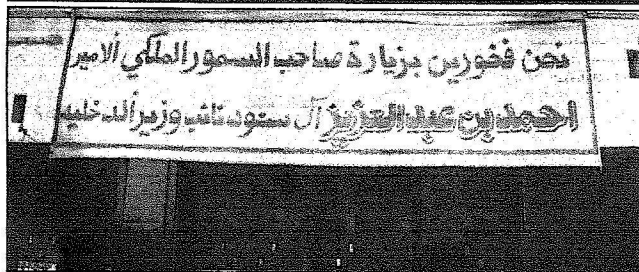 نحن فخورين بزيارة صاحب السمور الملكي ألامير
احمد بن عبدالعزيز آل سعود نائب وزير الدخليه